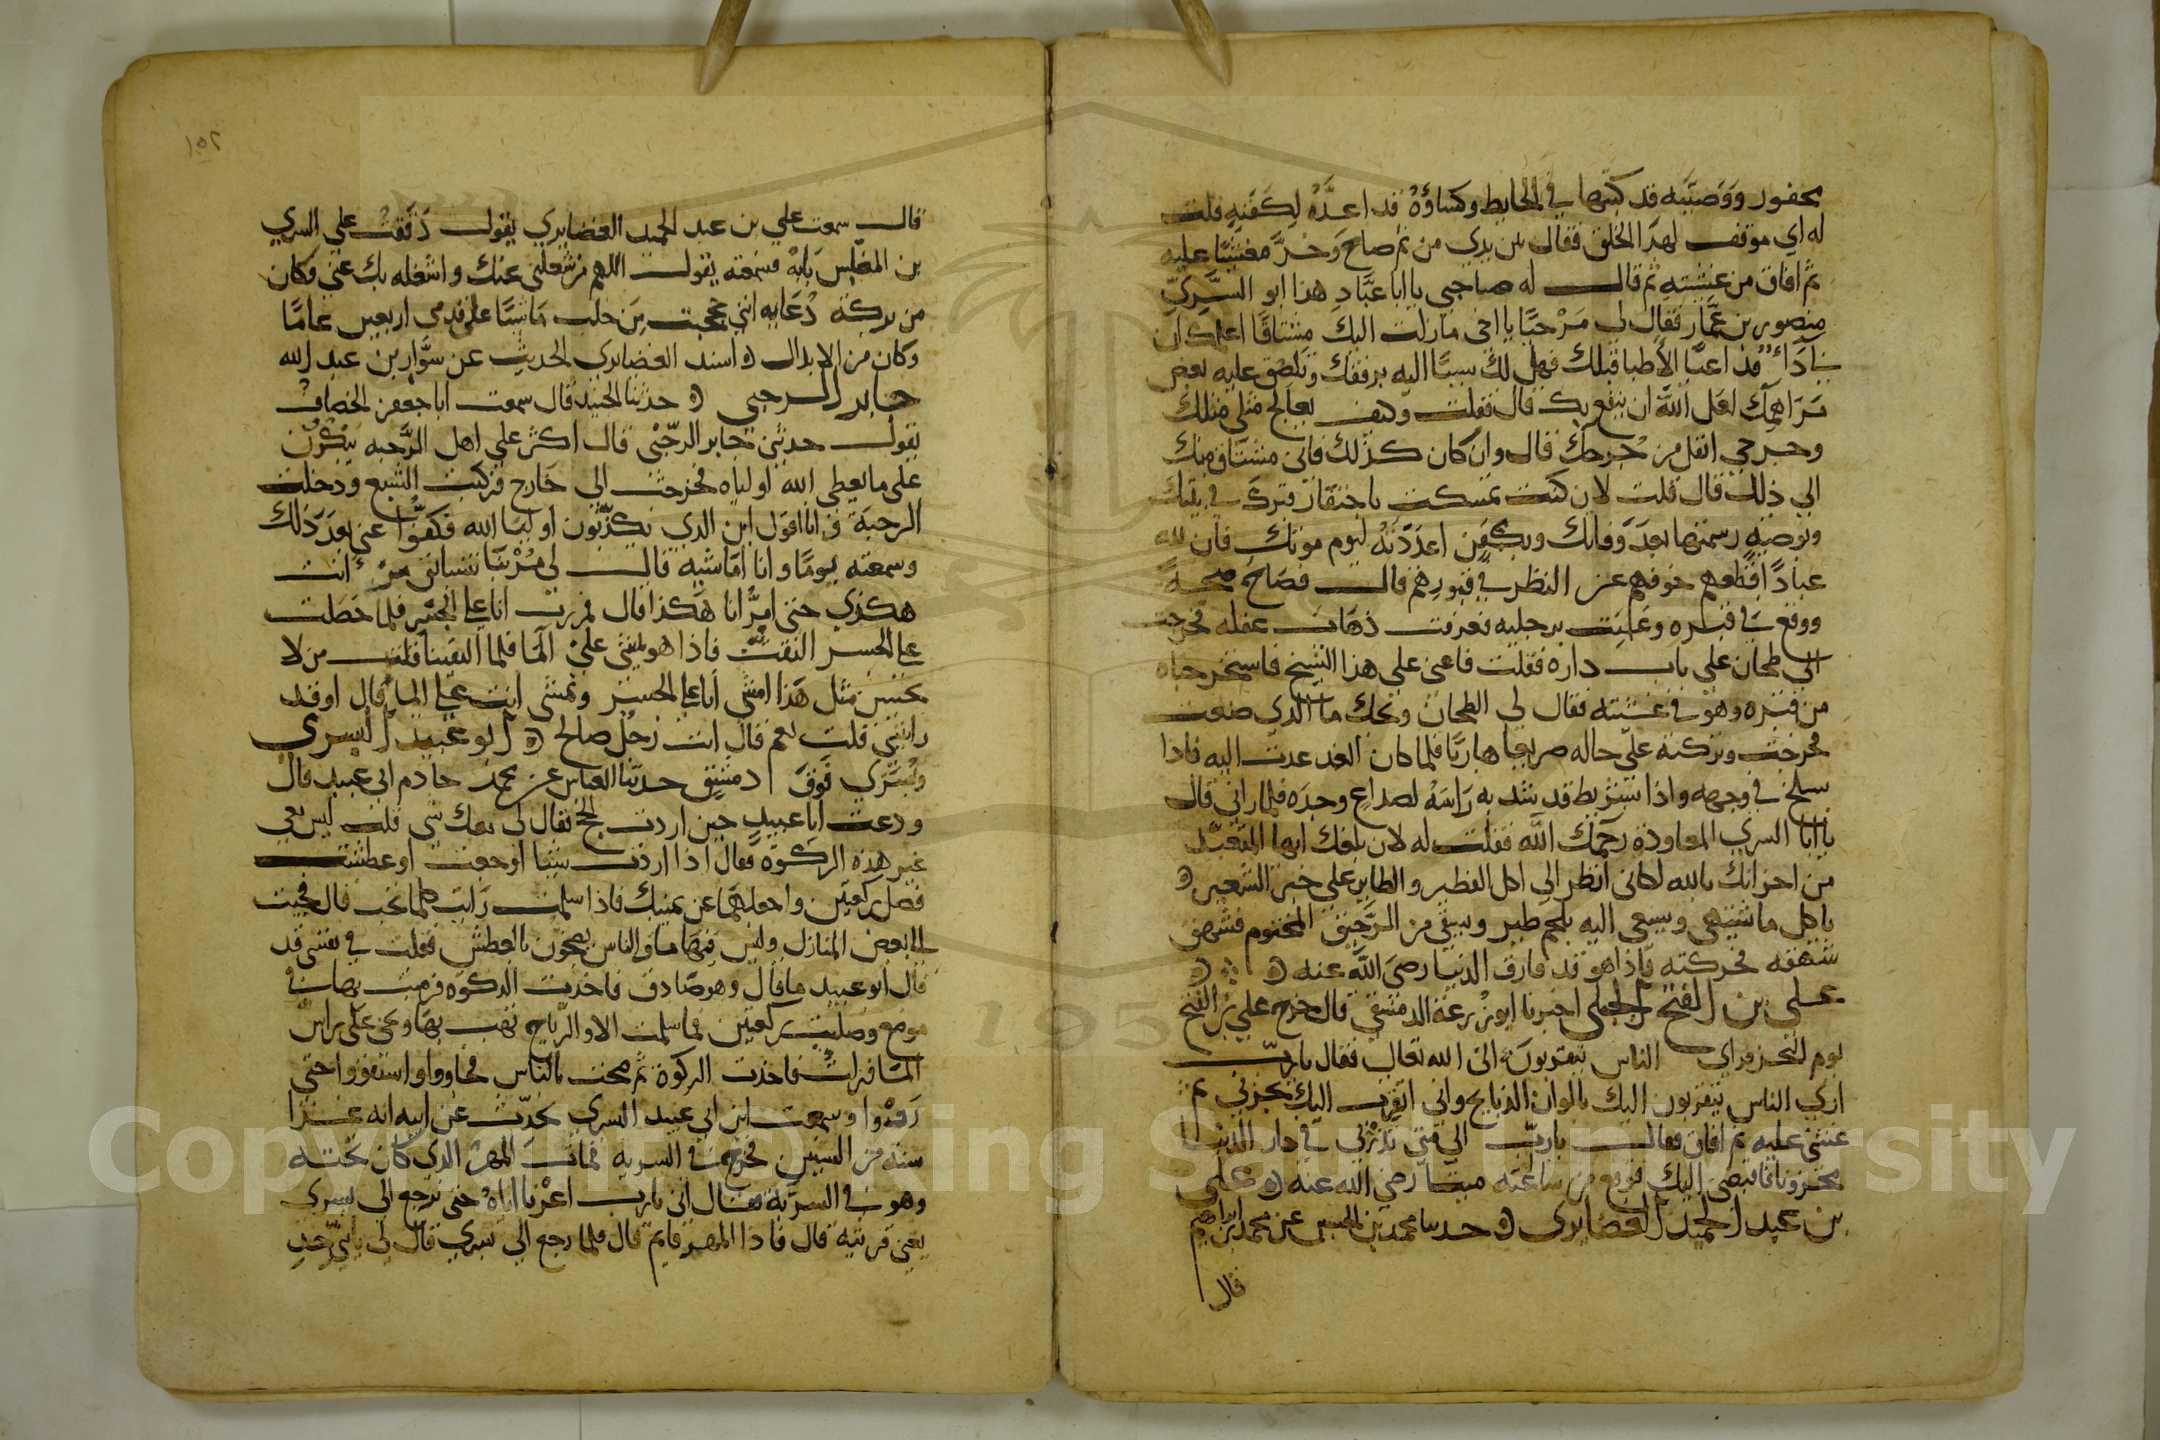 محفور ووصيته قد كتبها في الحايط وكساؤه قد اعده لكفنه قلت
له اي موقف لهذا الخلق فقال بين يدي من ثم صاح وخر مغشيا عليه
ثم افاق من غشيته ثم قال له صاحبي يا ابا عباد هذا ابو السري
منصور بن عمار فقال لي مرحبا يا اخي ما زلت اليك مشتاقا اعلمك ان
بي داء قد اعيا الأطبا قبلك فهل لك سببا اليه برفقك وتلصق عليه بعض
مراهمك لعل الله ان ينفع بك قال فقلت وكيف يعالج مثلي مثلك
وجرحي اثقل من جرحك قال وان كان كذلك فاني مشتاق منك
الي ذلك قال قلت لان كنت تمسكت باحتفار قبرك في بيتك
وبوصية رسمتها بعد وفاتك وبكفن اعددته ليوم موتك فان لله
عبادا اقطعهم خوفهم عن النظر في قبورهم قال فصاح صيحة
ووقع في قبره وجعل برجليه فعرفت ذهاب عقله فخرجت
الي طحان علي باب داره فقلت فاعني علي هذا الشيخ فاستخرجناه
من قبره وهو في غشيته فقال لي الطحان ويحك ما الذي صنعت
فخرجت وتركته علي حاله صريعا هاربا فلما كان الغد عدت اليه فاذا
سلخ في وجهه واذا شريط قد شد به راسه لصداع وجده فلما راني قال
يا ابا السري المعاودة رحمك الله فقلت له لان بلغك ايها المتعبد
من احزانك بالله لكاني انظر الي اكل الفطير والطاير علي خبز الشعير
ياكل ما شتهى ويسعي اليه بلحم طير ويسقي من الرحيق المختوم فشهق
شهقه فحركته فاذا هو قد فارق الدنيا رضي الله عنه
علي بن الفتح الحلبي اخبرنا ابو زرعة الدمشقي قال خرج علي بن الفتح
يوم النحر فراي الناس يتقربون الى الله تعالى فقال يارب
اري الناس يتقربون اليك بالوان الذبايح واني اتقرب اليك بحزني ثم
غشي عليه ثم افاق فقال يارب الي متي تذرني في دار الدنيا
محزونا فاقبضني اليك فوقع من ساعته ميتا رضي الله عنه علي
بن عبد الحميد الغضايري حدثنا محمد بن الحسين عن محمد بن ابراهيم
قال
١٥٢
قال سمعت علي بن عبد الحميد الغضايري يقول دققت علي السري
بن المغلس بابه فسمعته يقول اللهم من شغلني عنك فاشغله بك عني وكان
من بركة دعايه اني حججت من حلب ماشيا علي قدمي اربعين عاما
وكان من الابدال اسند الغضايري الحديث عن سوار بن عبد الله
جابر الرحبي حدثنا الجنيد قال سمعت ابا جعفر الخصاف
يقول حدثني جابر الرحبي قال اكثر علي اهل الرحبه ينكرون
علي ما يعطي الله اولياه فخرجت الي خارج فركبت السبع ودخلت
الرحبة وانا اقول اين الذي يكذبون اوليا الله فكفوا عني بعد ذلك
وسمعته يوما وانا اماشيه قال لي مر بنا نتسابق مر انت
هكذي حتى امر انا هكذا قال فمررت انا علي الجسر فلما حصلت
علي الجسر التفت فاذا هو يمشي علي الما فلما التقينا قلت من لا
يحسن مثل هذا امشي انا علي الجسر وتمشي انت علي الما قال اوقد
رايتني قلت نعم قال انت رجل صالح ابو عبيد البسري
وبسري فوق دمشق حدثنا العباس عن محمد خادم ابي عبيد قال
ودعت ابا عبيد حين اردت الحج فقال لي معك شي قلت ليس معي
غير هذه الركوة فقال اذا اردت شيا او جعت او عطشت
فصل ركعتين واجعلها عن يمينك فاذا سلمت رايت كلما تحب قال فجيت
الي بعض المنازل وليس فيها ما والناس يضجون بالعطش فقلت في نفسي قد
قال ابو عبيد ما قال وهو صادق فاخذت الركوه فرميت بها في
موضع وصليت ركعتين فما سلمت الا والرياح تهب بها وهي علي راس
الما فاخذت الركوة ثم صحت بالناس فجاووا واستقوا حتي
رووا وسمعت ابن ابي عبيد البسري يحدث عن ابيه انه غزا
سنه من السنين فخرج في السريه فمات المهر الذي كان تحته
وهو في السرية فقال اني يارب اعرنا اياه حتى نرجع الي بسري
يعني قريته قال فاذا المهر قايم قال فلما رجع الي بسري قال لي يا بني خذ